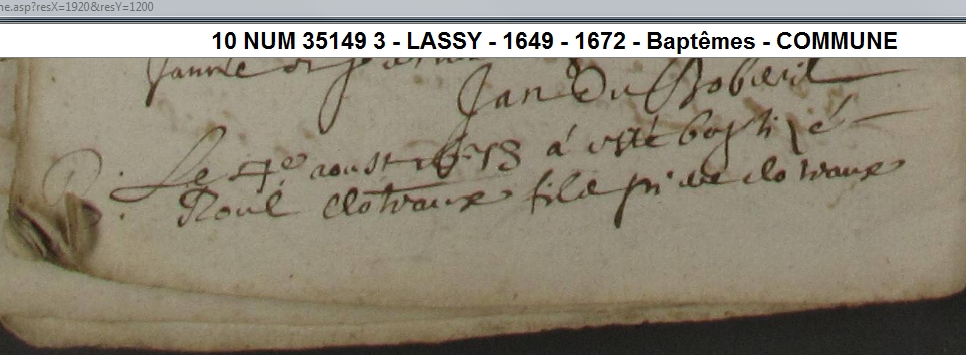 ne.asp?resX=1920&resY=1200
10 NUM 35149 3 - LASSY - 1649 - 1672 - Baptêmes - COMMUNE
Jan Du Boberil
Le 4e aoust 1653 à esté baptizé
Roul clotraux fils pi clotraux